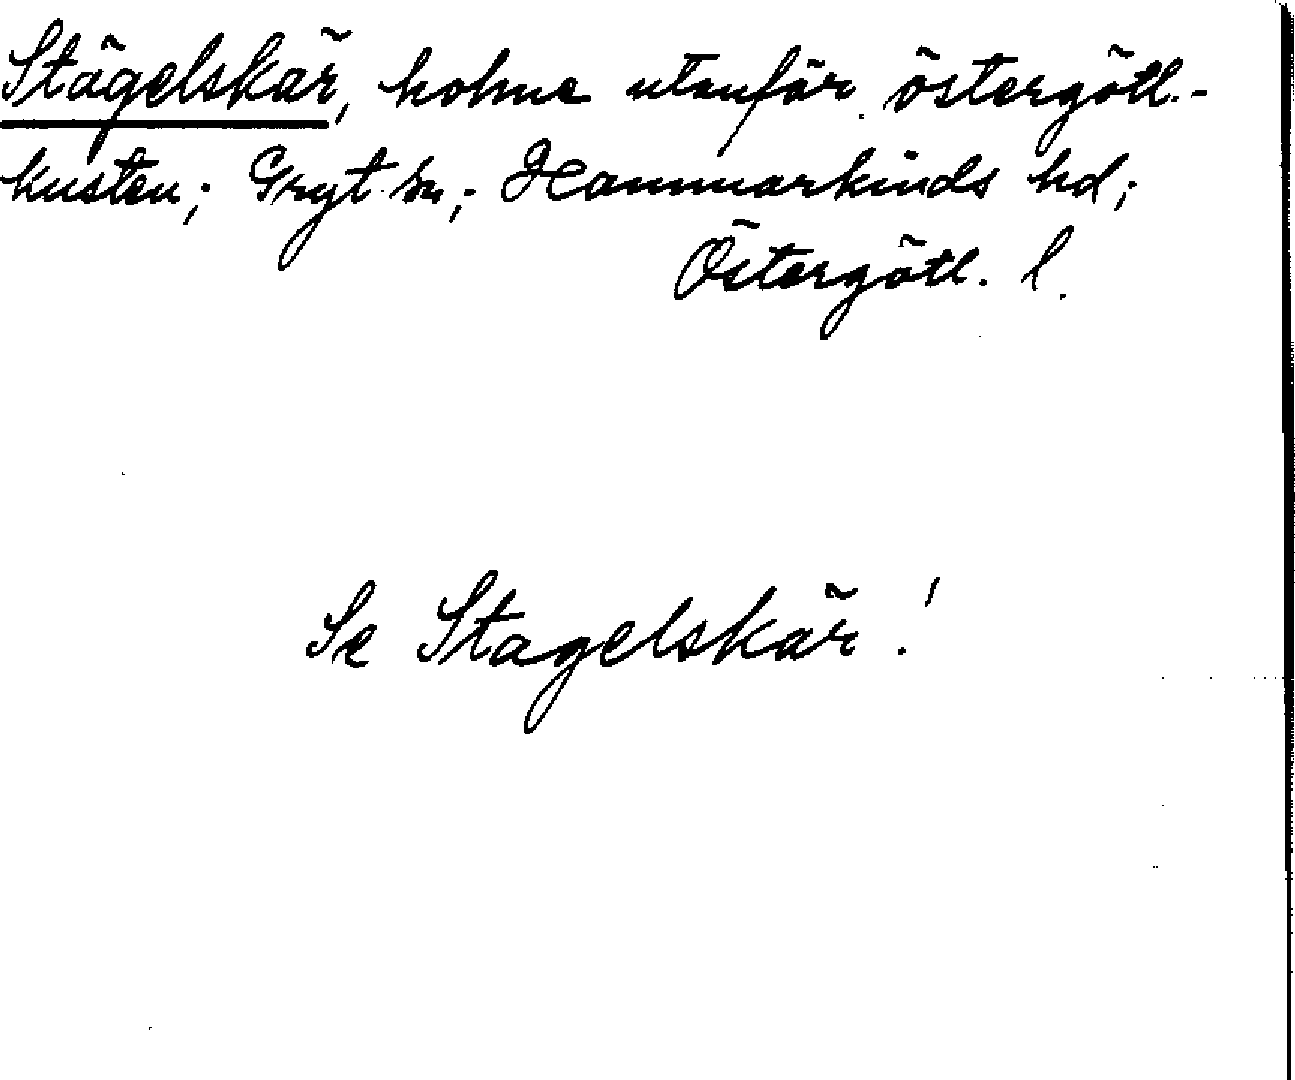 Stägelskär, holme utanför östergötl.-
kusten; Gryt sn; Hammarkinds hd;
Östergötl. l.
Se Stagelskär!